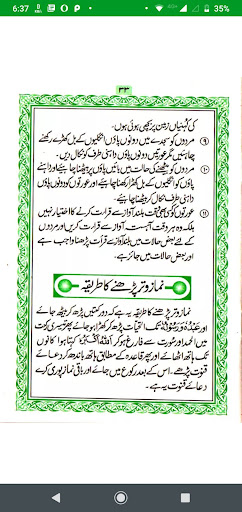 6:37
35%
۳۳
کی کہنیاں زمین پر بچھی ہوئی ہوں۔
۹ مردوں کو سجدے میں دونوں پاؤں انگلیوں کے بل کھڑے رکھنے
چاہئیں مگر عورتیں دونوں پاؤں داہنی طرف کو نکال دیں۔
۱۰ مردوں کو بیٹھنے کی حالت میں بائیں پاؤں پر بیٹھنا چاہیئے اور داہنے
پاؤں کو انگلیوں کے بل کھڑا رکھنا چاہیئے اور عورتوں کو دونوں پاؤں
داہنی طرف نکال کر بیٹھنا چاہیئے۔
۱۱ عورتوں کو کسی بھی وقت بلند آواز سے قرات کرنے کا اختیار نہیں
بلکہ وہ ہر وقت آہستہ آواز سے قرات کریں اور مردوں
کے لئے بعض حالات میں بلند آواز سے قرات پڑھنا واجب ہے
اور بعض حالات میں جائز ہے۔
نماز وتر پڑھنے کا طریقہ
نماز وتر پڑھنے کا طریقہ یہ ہے کہ دو رکعتیں پڑھ کر بیٹھ جائے
اور عَبْدُہٗ وَرَسُوْلُہٗ تک التحیات پڑھ کر کھڑا ہو جائے پھر تیسری رکعت
میں الحمد اور سورت سے فارغ ہو کر اَللّٰہُ اَکْبَرُ کہتا ہوا کانوں
تک ہاتھ اٹھائے اور پھر قاعدہ کے مطابق ہاتھ باندھ کر دعائے
قنوت پڑھے۔ اس کے بعد رکوع میں جائے اور باقی نماز پوری کرے
دعائے قنوت یہ ہے۔